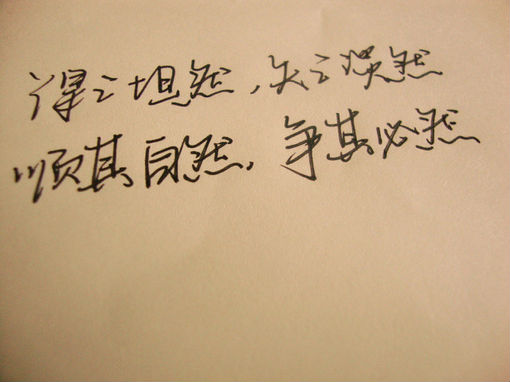 得之坦然，失之淡然
顺其自然，争其必然